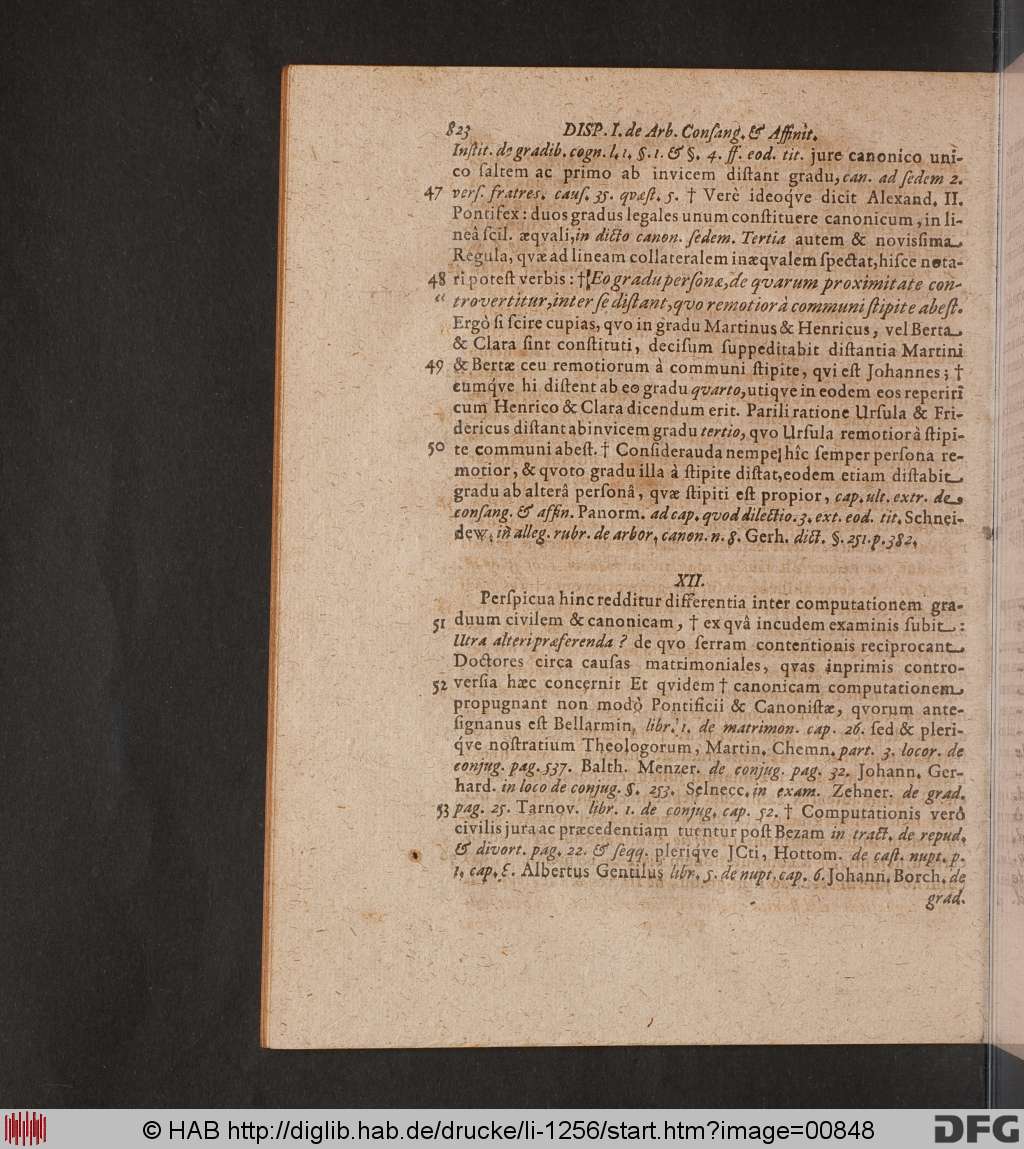 823 DISP. I. de Arb. Conſang. & Affinit.
Inſtit. de gradib. cogn. l. 1. §. 1. & §. 4. ff. eod. tit. jure canonico uni-
co ſaltem ac primo ab invicem diſtant gradu, can. ad ſedem 2.
47 verſ. fratres. cauſ. 35. qvæſt. 5. † Verè ideoqve dicit Alexand. II.
Pontifex: duos gradus legales unum conſtituere canonicum, in li-
neâ ſcil. æqvali, in dicto canon. ſedem. Tertia autem & novisſima
Regula, qvæ ad lineam collateralem inæqvalem ſpectat, hiſce nota-
48 ri poteſt verbis: † Eo gradu perſonæ, de qvarum proximitate con-
“ trovertitur, inter ſe diſtant, qvo remotior à communi ſtipite abeſt.
Ergò ſi ſcire cupias, qvo in gradu Martinus & Henricus, vel Berta
& Clara ſint conſtituti, deciſum ſuppeditabit diſtantia Martini
49 & Bertæ ceu remotiorum à communi ſtipite, qvi eſt Johannes; †
cumq́ve hi diſtent ab eo gradu qvarto, utiqve in eodem eos reperiri
cum Henrico & Clara dicendum erit. Parili ratione Urſula & Fri-
dericus diſtant abinvicem gradu tertio, qvo Urſula remotior à ſtipi-
50 te communi abeſt. † Conſiderauda nempe hîc ſemper perſona re-
motior, & qvoto gradu illa à ſtipite diſtat, eodem etiam diſtabit
gradu ab alterâ perſonâ, qvæ ſtipiti eſt propior, cap. ult. extr. de
conſang. & affin. Panorm. ad cap. qvod dilectio. 3. ext. eod. tit. Schnei-
dew. in alleg. rubr. de arbor. canon. n. 8. Gerh. dict. §. 251. p. 382.
XII.
Perſpicua hinc redditur differentia inter computationem gra-
51 duum civilem & canonicam, † ex qvâ incudem examinis ſubit:
Utra alteri præferenda? de qvo ſerram contentionis reciprocant
Doctores circa cauſas matrimoniales, qvas inprimis contro-
52 verſia hæc concernit Et qvidem † canonicam computationem
propugnant non modò Pontificii & Canoniſtæ, qvorum ante-
ſignanus eſt Bellarmin. libr. 1. de matrimon. cap. 26. ſed & pleri-
q́ve noſtratium Theologorum, Martin. Chemn. part. 3. locor. de
conjug. pag. 537. Balth. Menzer. de conjug. pag. 32. Johann. Ger-
hard. in loco de conjug. §. 253. Selnecc. in exam. Zehner. de grad.
53 pag. 25. Tarnov. libr. 1. de conjug. cap. 52. † Computationis verò
civilis jura ac præcedentiam tuentur poſt Bezam in tract. de repud.
& divort. pag. 22. & ſeqq. pleriqve JCti, Hottom. de caſt. nupt. p.
1. cap. Albertus Gentilus libr. 5. de nupt. cap. 6. Johann. Borch. de
grad.
© HAB http://diglib.hab.de/drucke/li-1256/start.htm?image=00848
DFG